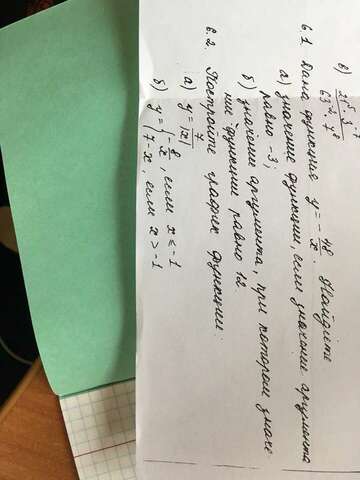 в)
21⁵·3⁻⁷
63·2·7⁸
6.1 Дана функция y = -48/x. Найдите
а) значение функции, если значение аргумента
равно -3;
б) значение аргумента, при котором значе-
ние функции равно 12.
6.2. Постройте график функции:
а) y = 7/|x|;
б) y = { -8/x, если x ≤ -1
7-x, если x > -1